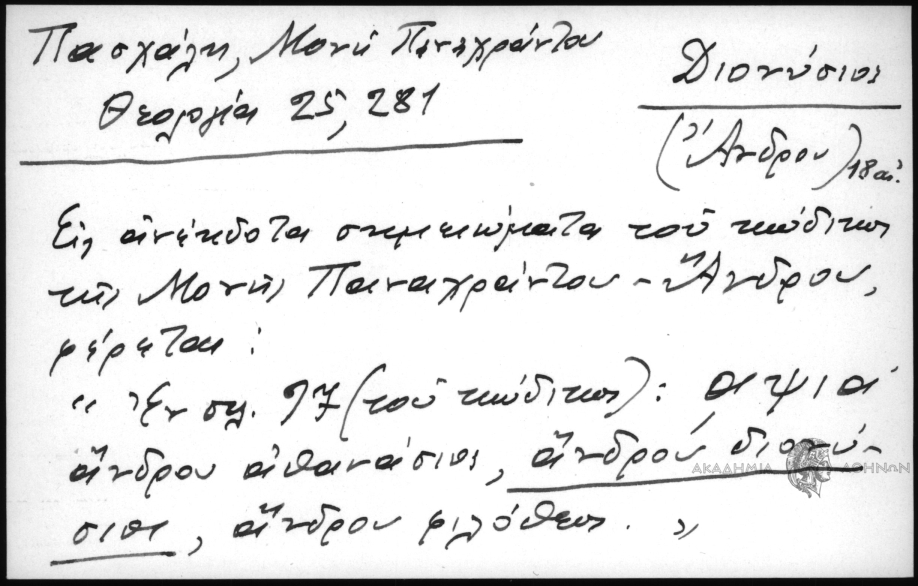 Πασχάλη, Μονὴ Παναχράντου
Θεολογία 25, 281
Διονύσιος
(Ἄνδρου) 18 αἰ.
Εἰς ἀνέκδοτα σημειώματα τοῦ κώδικος
τῆς Μονῆς Παναχράντου - Ἄνδρου,
φέρεται:
"Ἐν σελ. 97 (τοῦ κώδικος): αψια
ἄνδρου ἀθανάσιος, ἄνδρου διονύ-
σιος, ἄνδρου φιλόθεος."
ΑΚΑΔΗΜΙΑ ΑΘΗΝΩΝ